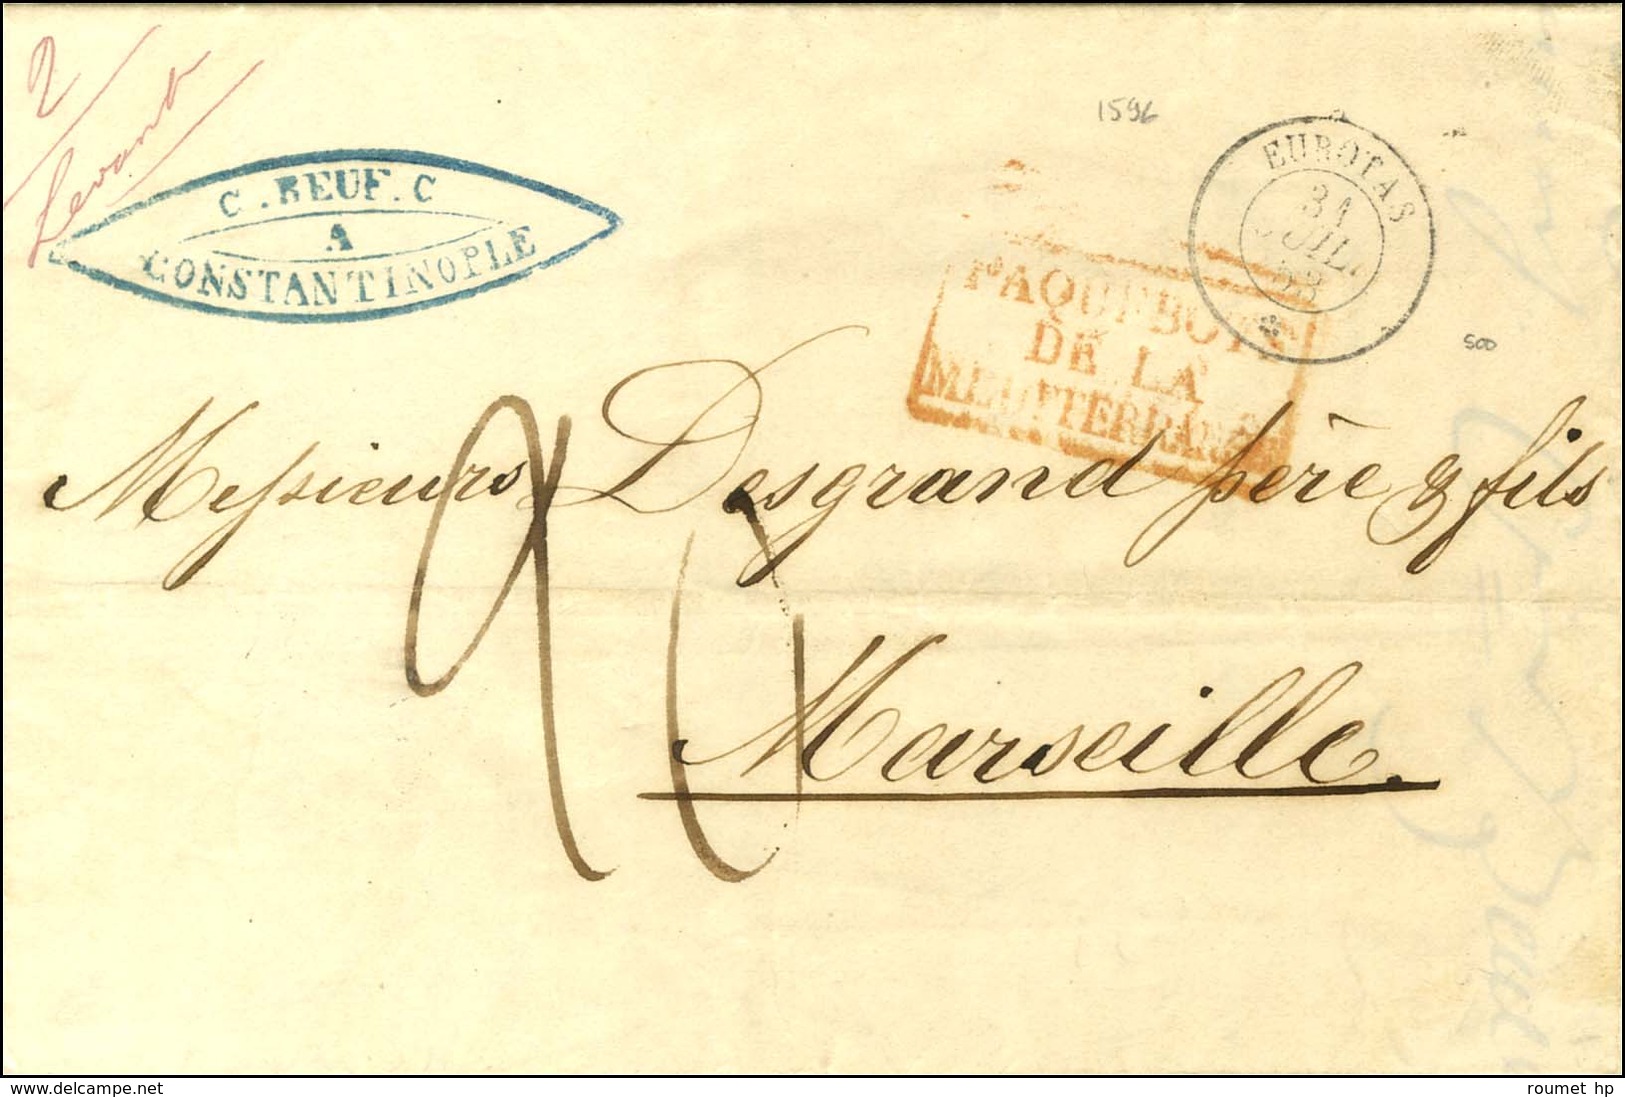 2
Levant
C. BEUF. C
A
CONSTANTINOPLE
1596
EUROTAS
31
JUIL.
53
500
PAQUEBOTS
DE LA
MEDITERRANÉE
Messieurs Desgrand père & fils
20
Marseille.
www.delcampe.net
roumet hp